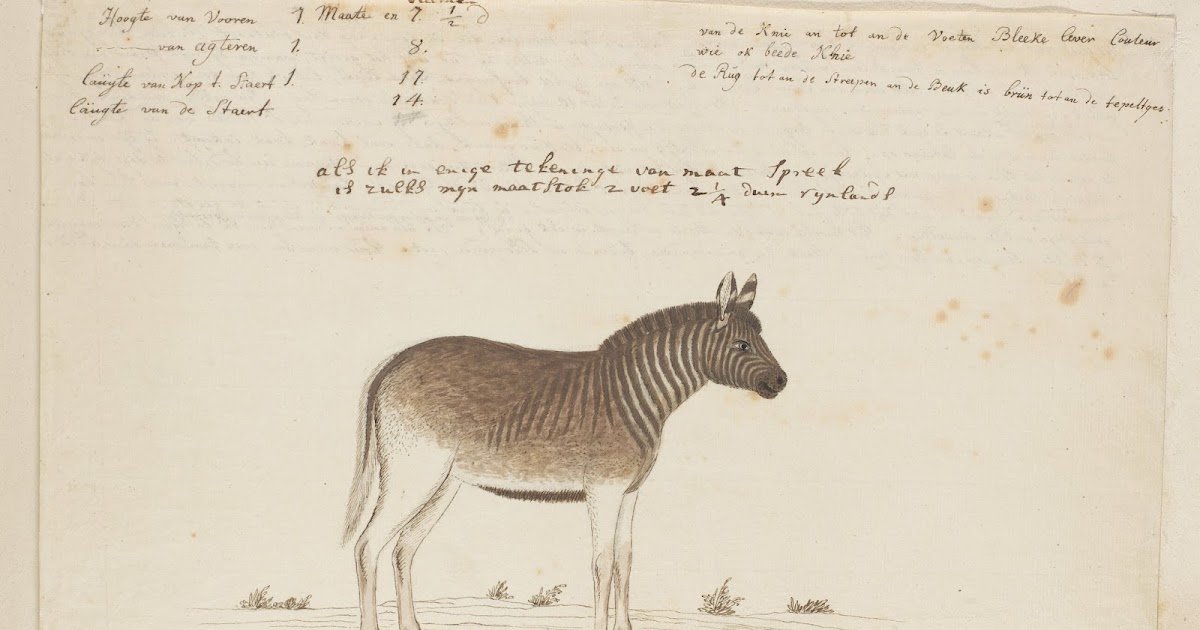 Hoogte van Vooren 1. Maate en 7. 1/2 d
van agteren 1. 8.
läugte van Kop t. Staert 1. 17.
läugte van de Staert 14.
van de Knie an tot an de Voeten Bleeke lever Couleur
wie ok beede Knie
de Rüg tot an de Streepen an de Beuk is brün tot an de
als ik in enige tekeninge van maat Spreek
is zulks myn maatstok 2 voet 2 1/4 duim rynlands